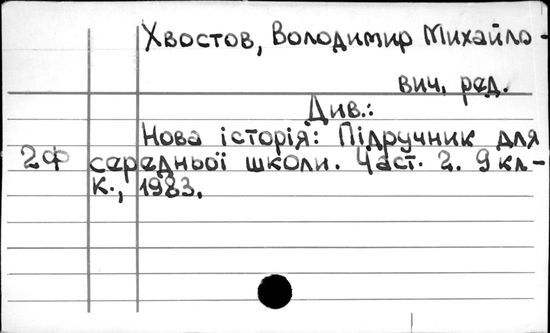 Хвостов, Володимир Михайло-
вич, ред.
Див.:
Нова історія: Підручник для
2ф середньої школи. Част. 2. 9 кл-
К., 1983.